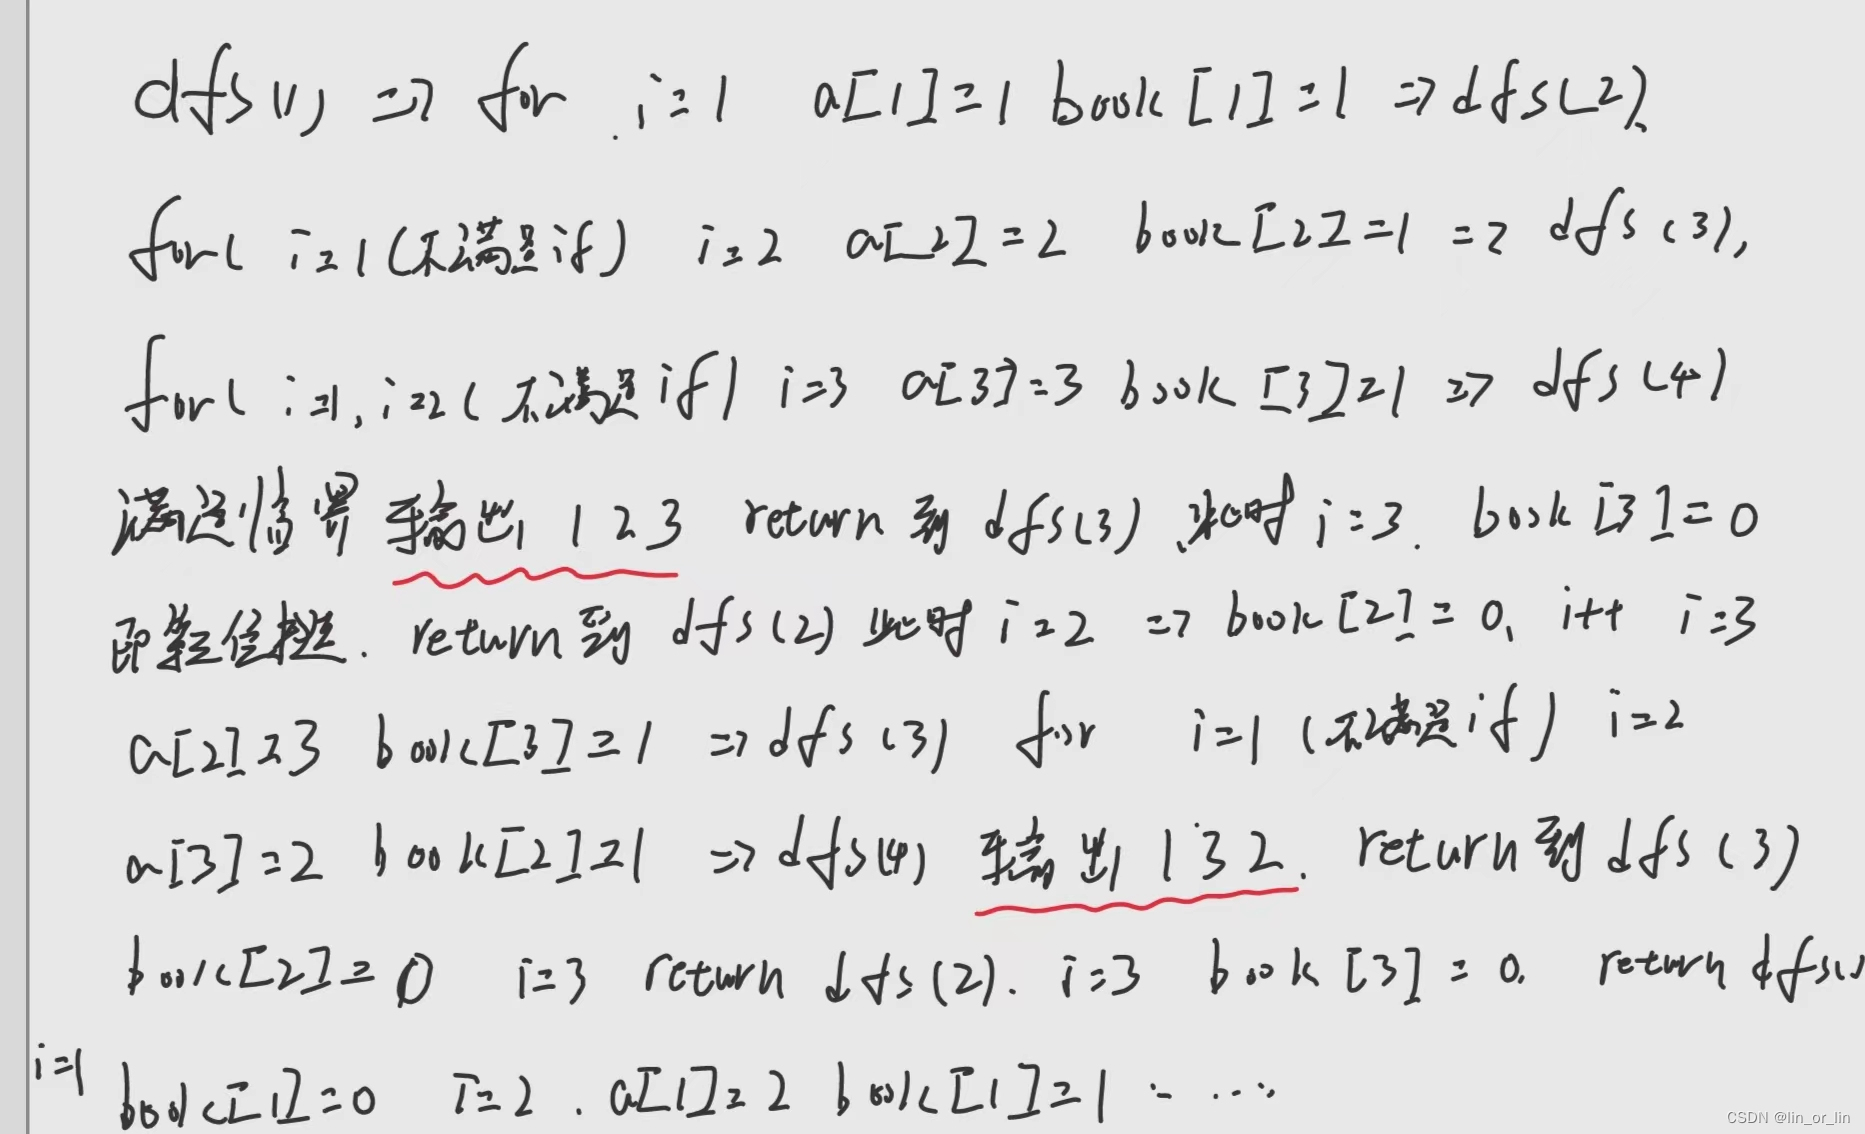 dfs(1) => for i=1 a[1]=1 book[1]=1 => dfs(2)、
for( i=1(不满足if) i=2 a[2]=2 book[2]=1 => dfs(3),
for( i=1, i=2( 不满足if) i=3 a[3]=3 book[3]=1 => dfs(4)
满足 输出 1 2 3 return 到 dfs(3) 此时 i=3. book[3]=0
即 . return 到 dfs(2) 此时 i=2 => book[2]=0, i++ i=3
a[2]=3 book[3]=1 => dfs(3) for i=1 (不满足if) i=2
a[3]=2 book[2]=1 => dfs(4) 输出 1 3 2. return 到 dfs(3)
book[2]=0 i=3 return dfs(2). i=3 book[3]=0. return dfs(1)
i=1 book[1]=0 i=2. a[1]=2 book[1]=1 ······
CSDN @lin_or_lin